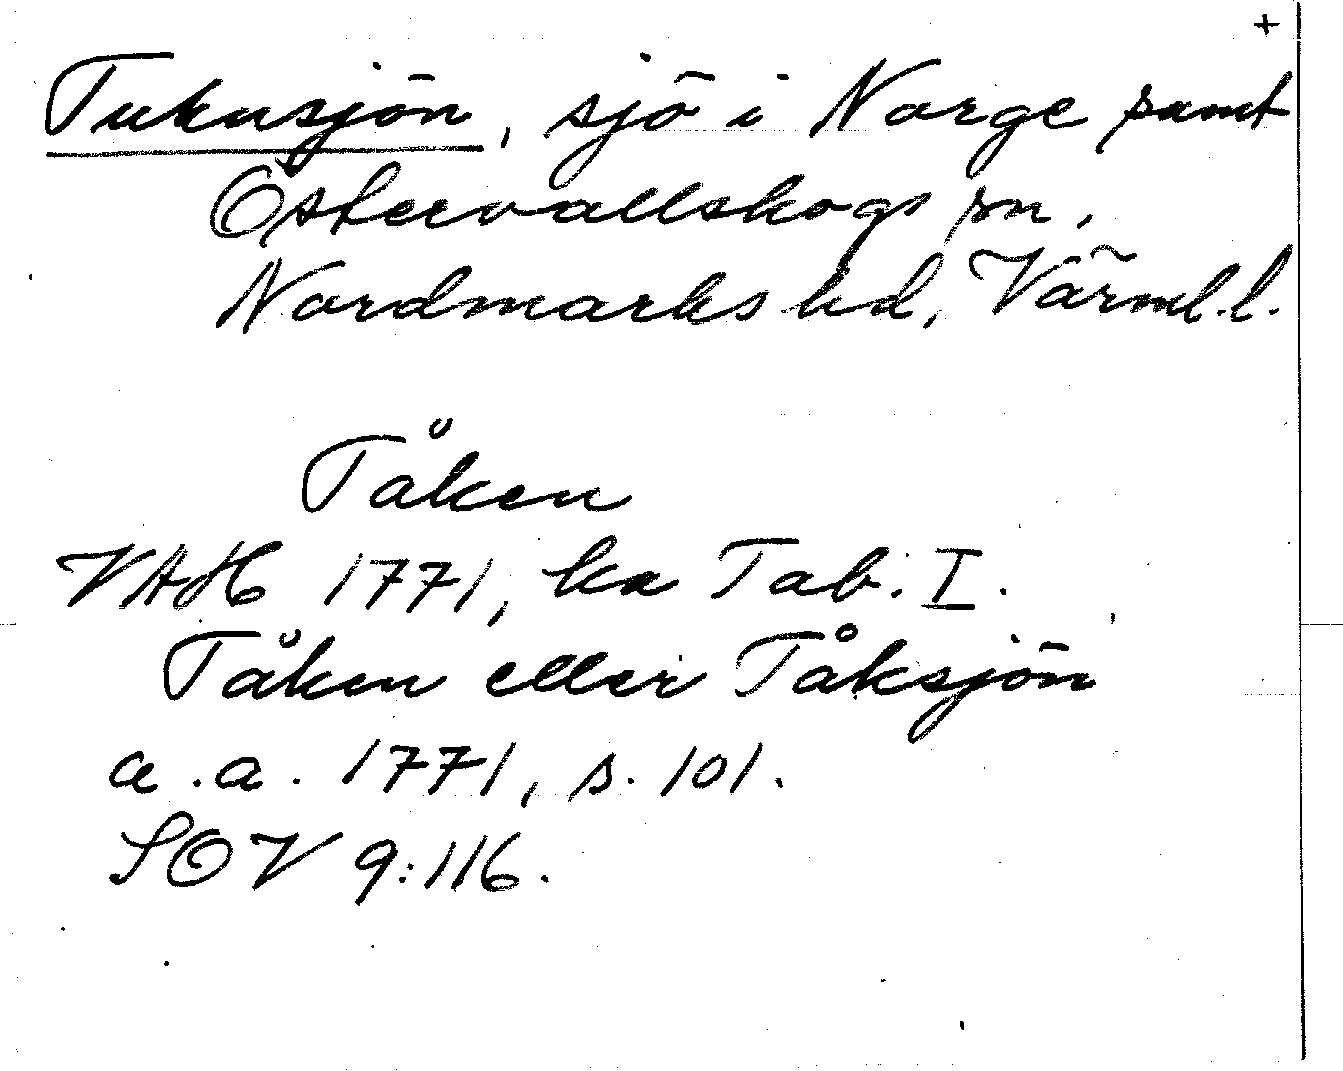 +
Tukusjön, sjö i Norge samt
Östervallskogs sn,
Nordmarks hd, Värml. l.
Tåken
VAH 1771, ka Tab. I.
Tåken eller Tåksjön
a. a. 1771, s. 101.
SOV 9:116.